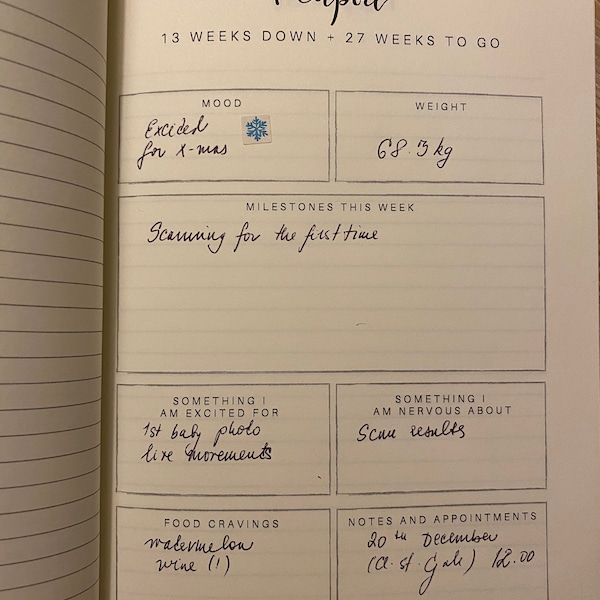 13 WEEKS DOWN + 27 WEEKS TO GO
MOOD
Excited
for x-mas
WEIGHT
68.3 kg
MILESTONES THIS WEEK
Scanning for the first time
SOMETHING I
AM EXCITED FOR
1st baby photo
live movements
SOMETHING I
AM NERVOUS ABOUT
Scan results
FOOD CRAVINGS
watermelon
wine (!)
NOTES AND APPOINTMENTS
20th December
12.00